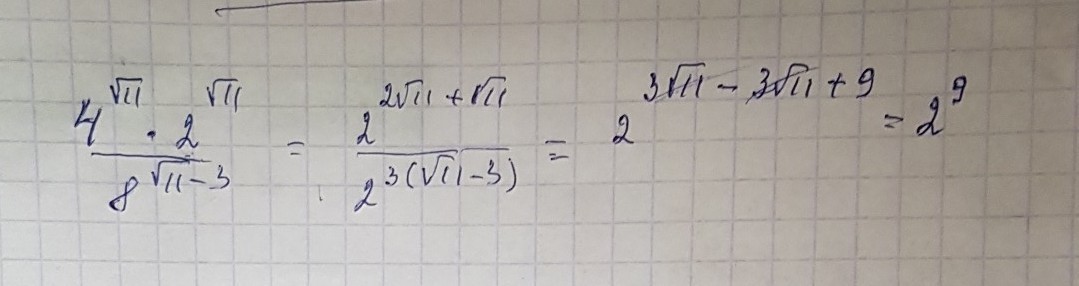 4^√11 · 2^√11 / 8^(√11-3) = 2^(2√11+√11) / 2^(3(√11-3)) = 2^(3√11-3√11+9) = 2^9